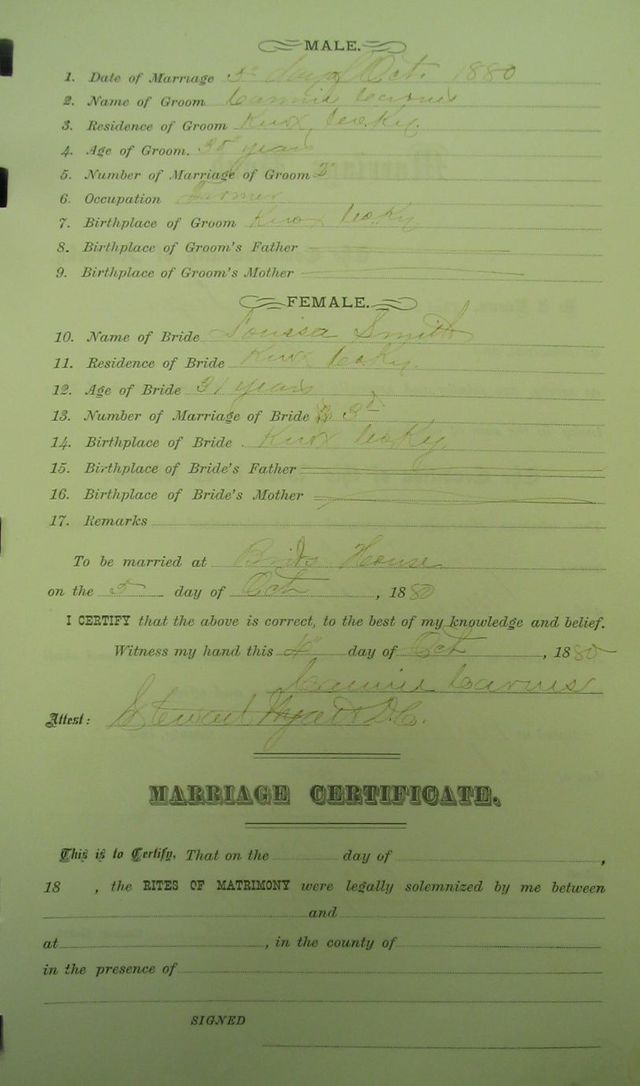 MALE.
1. Date of Marriage 5th day of Oct. 1880
2. Name of Groom Cannie Carnes
3. Residence of Groom Knox, Co. Ky.
4. Age of Groom. 35 years
5. Number of Marriage of Groom 2d
6. Occupation Farmer
7. Birthplace of Groom Knox Co Ky
8. Birthplace of Groom's Father
9. Birthplace of Groom's Mother
FEMALE.
10. Name of Bride Smith
11. Residence of Bride Knox Co Ky.
12. Age of Bride 31 years
13. Number of Marriage of Bride 3d
14. Birthplace of Bride. Knox Co Ky
15. Birthplace of Bride's Father
16. Birthplace of Bride's Mother
17. Remarks
To be married at Brids House
on the 5 day of Oct, 1880
I CERTIFY that the above is correct, to the best of my knowledge and belief.
Witness my hand this 4th day of Oct, 1880
Cannie Carnes
Attest: Stewart D.C.
MARRIAGE CERTIFICATE.
This is to Certify, That on the day of ,
18 , the RITES OF MATRIMONY were legally solemnized by me between
and
at , in the county of
in the presence of
SIGNED